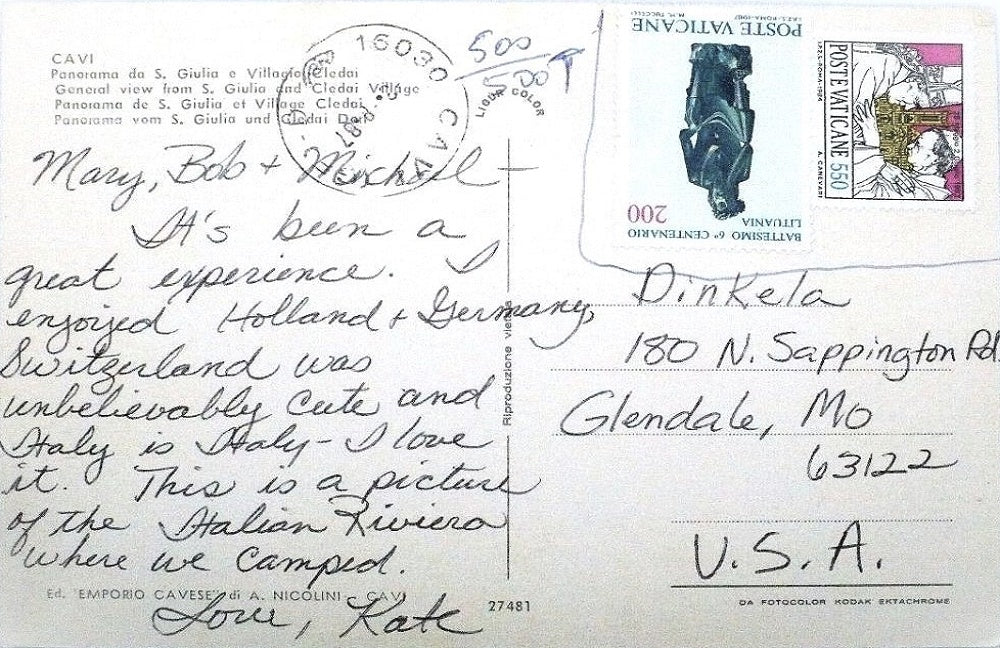 CAVI
Panorama da S. Giulia e Villagio Cledai
General view from S. Giulia and Cledai Village
Panorama de S. Giulia et Village Cledai
Panorama vom S. Giulia und Cledai
16030 CAVI
87
500
500 T
LIQUR COLOR
POSTE VATICANE
I.P.Z.S.-ROMA-1987
200
BATTESIMO 6° CENTENARIO
LITUANIA
POSTE VATICANE 550
I.P.Z.S.-ROMA-1984
A. CANEVARI
Mary, Bob + Michael -
It's been a
great experience. I
enjoyed Holland + Germany,
Switzerland was
unbelievably cute and
Italy is Italy - I love
it. This is a picture
of the Italian Riviera
where we camped.
Love, Kate
Ed. "EMPORIO CAVESE" di A. NICOLINI - CAVI
27481
Riproduzione
Dinkela
180 N. Sappington Rd.
Glendale, Mo
63122
U.S.A.
DA FOTOCOLOR KODAK EKTACHROME